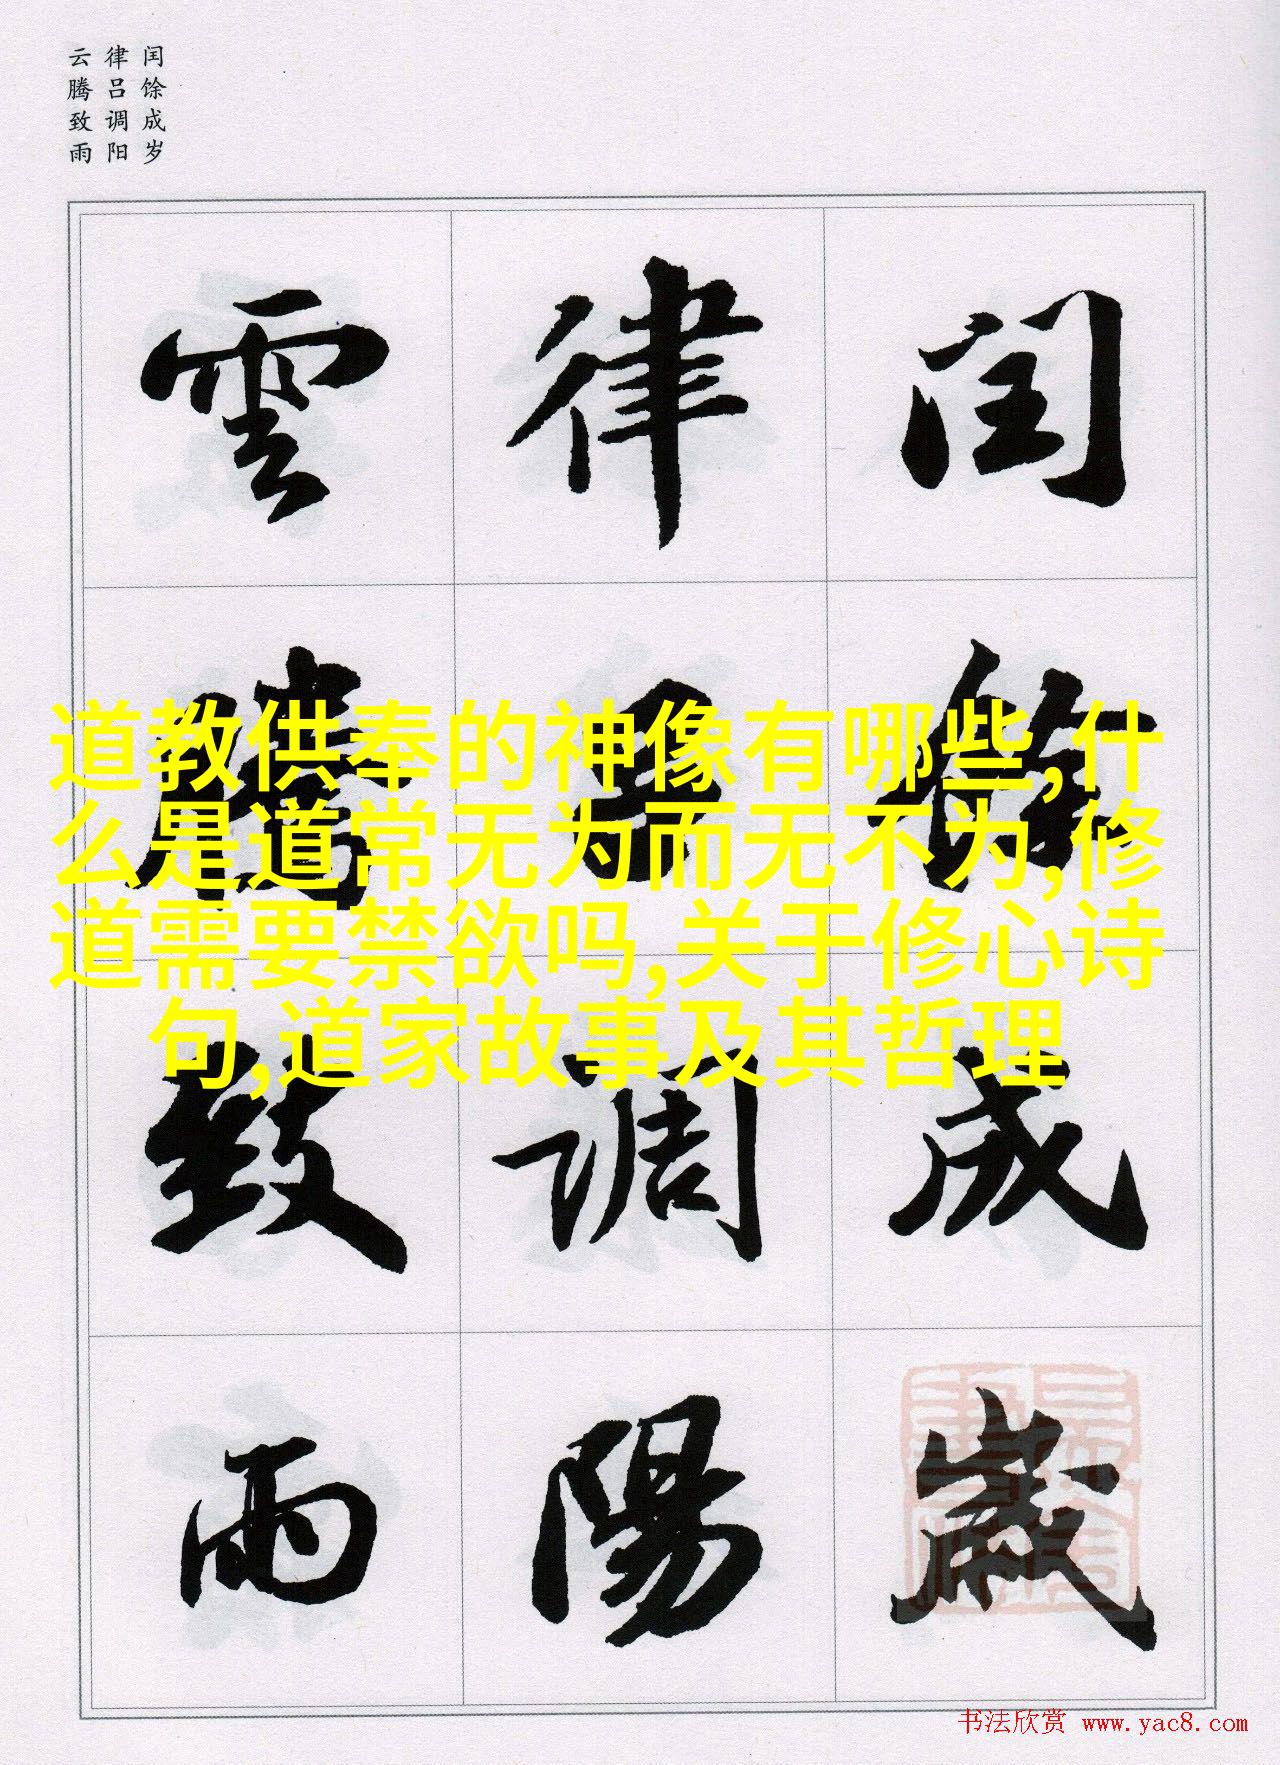 闰馀成岁
律吕调阳
云腾致雨
閏餘成歲
律吕調陽
雲騰致雨
道教供奉的神像有哪些,什
么是道常无为而无不为,修
道需要禁欲吗,关于修心诗
句,道家故事及其哲理
书法欣赏 www.yac8.com